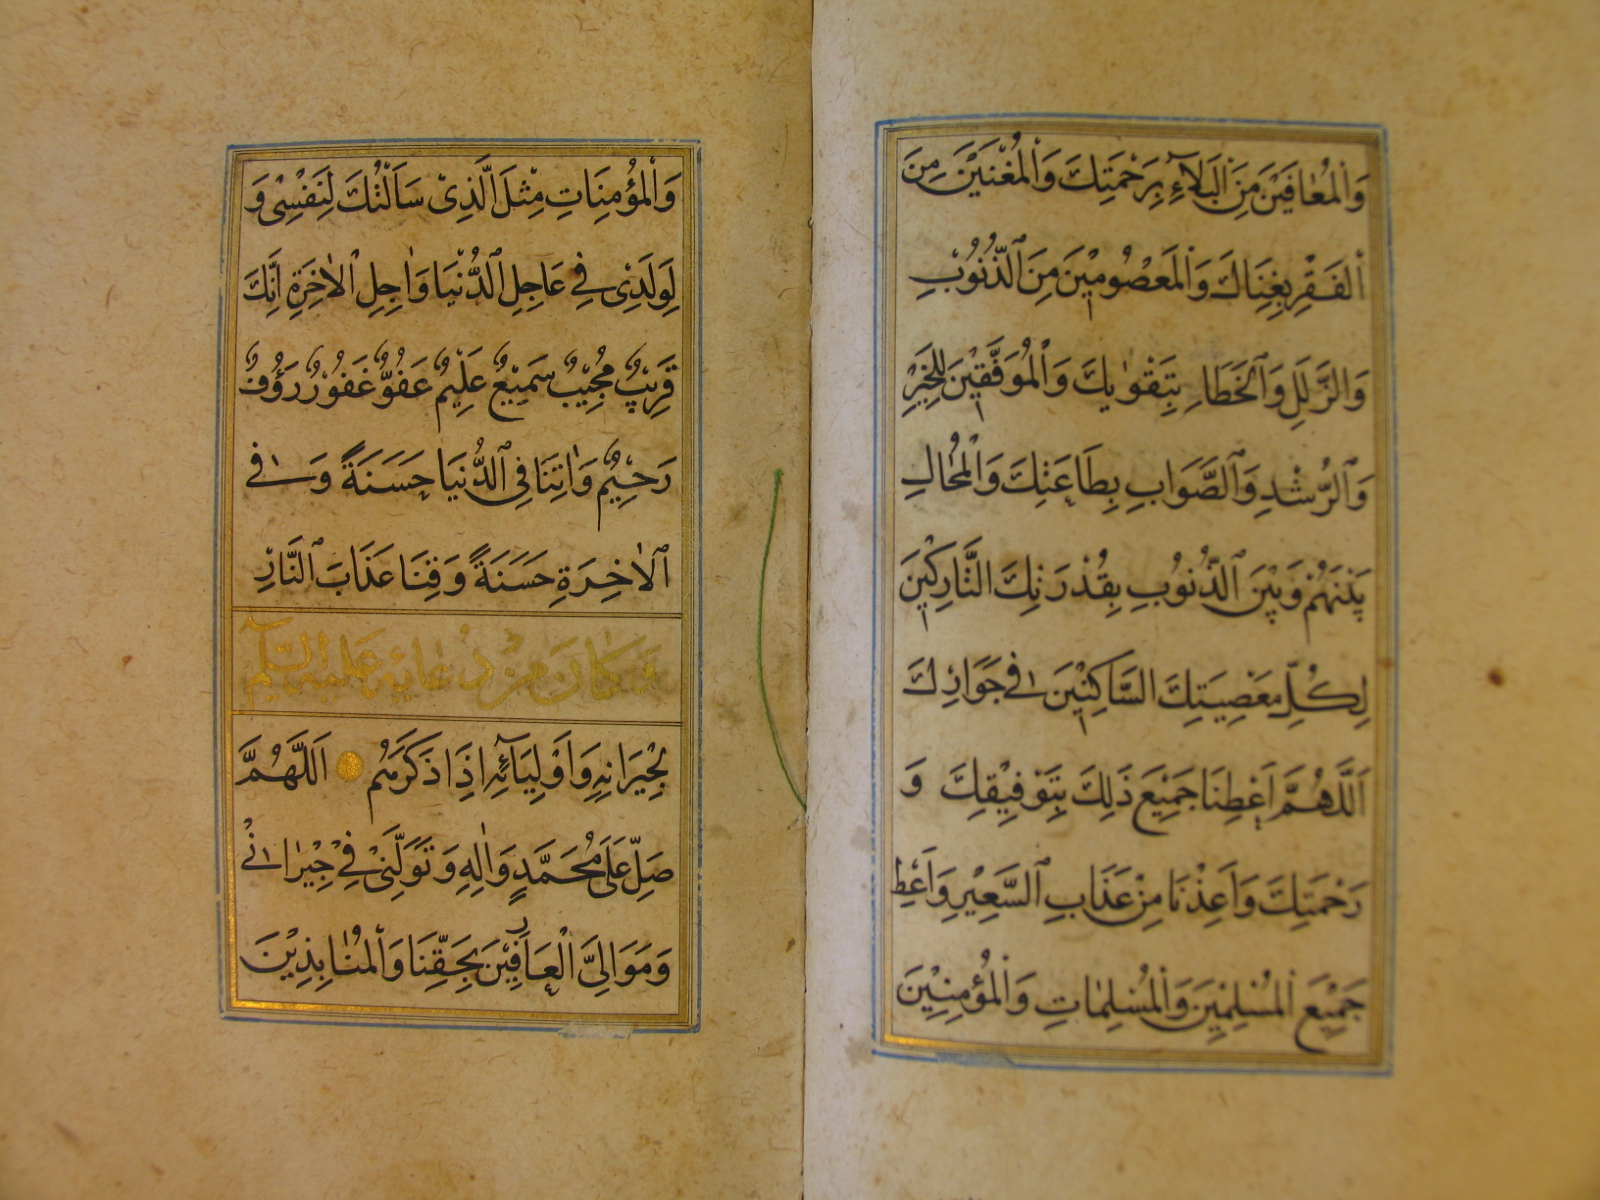 وَالْمُعَافَيْنَ مِنَ الْبَلَآءِ بِرَحْمَتِكَ وَالْمُغْنَيْنَ مِنَ
الْفَقْرِ بِغِنَاكَ وَالْمَعْصُومِيْنَ مِنَ الذُّنُوْبِ
وَالزَّلَلِ وَالْخَطَاءِ بِتَقْوٰيكَ وَالْمُوَفَّقِيْنَ لِلْخَيْرِ
وَالرُّشْدِ وَالصَّوَابِ بِطَاعَتِكَ وَالْمُحَالِ
بَيْنَهُمْ وَبَيْنَ الذُّنُوْبِ بِقُدْرَتِكَ التَّارِكِيْنَ
لِكُلِّ مَعْصِيَتِكَ السَّاكِنِيْنَ فِي جَوَارِكَ
اَللّٰهُمَّ اَعْطِنَا جَمِيْعَ ذَلِكَ بِتَوْفِيْقِكَ وَ
رَحْمَتِكَ وَاَعِذْنَا مِنْ عَذَابِ السَّعِيْرِ وَاَعْطِ
جَمِيْعَ الْمُسْلِمِيْنَ وَالْمُسْلِمَاتِ وَالْمُؤْمِنِيْنَ
وَالْمُؤْمِنَاتِ مِثْلَ الَّذِيْ سَاَلْتُكَ لِنَفْسِيْ وَ
لِوَلَدِيْ فِي عَاجِلِ الدُّنْيَا وَاٰجِلِ الْاٰخِرَةِ اِنَّكَ
قَرِيْبٌ مُجِيْبٌ سَمِيْعٌ عَلِيْمٌ عَفُوٌّ غَفُوْرٌ رَؤُفٌ
رَحِيْمٌ وَاٰتِنَا فِي الدُّنْيَا حَسَنَةً وَفِي
الْاٰخِرَةِ حَسَنَةً وَقِنَا عَذَابَ النَّارِ
وَكَانَ مِنْ دُعَائِهِ عَلَيْهِ السَّلَام
لِجِيْرَانِهِ وَاَوْلِيَآئِهِ اِذَا ذَكَرَهُمْ اَللّٰهُمَّ
صَلِّ عَلَى مُحَمَّدٍ وَاٰلِهِ وَتَوَلَّنِيْ فِيْ جِيْرَانِيْ
وَمَوَالِيَّ الْعَارِفِيْنَ بِحَقِّنَا وَالْمُنَابِذِيْنَ